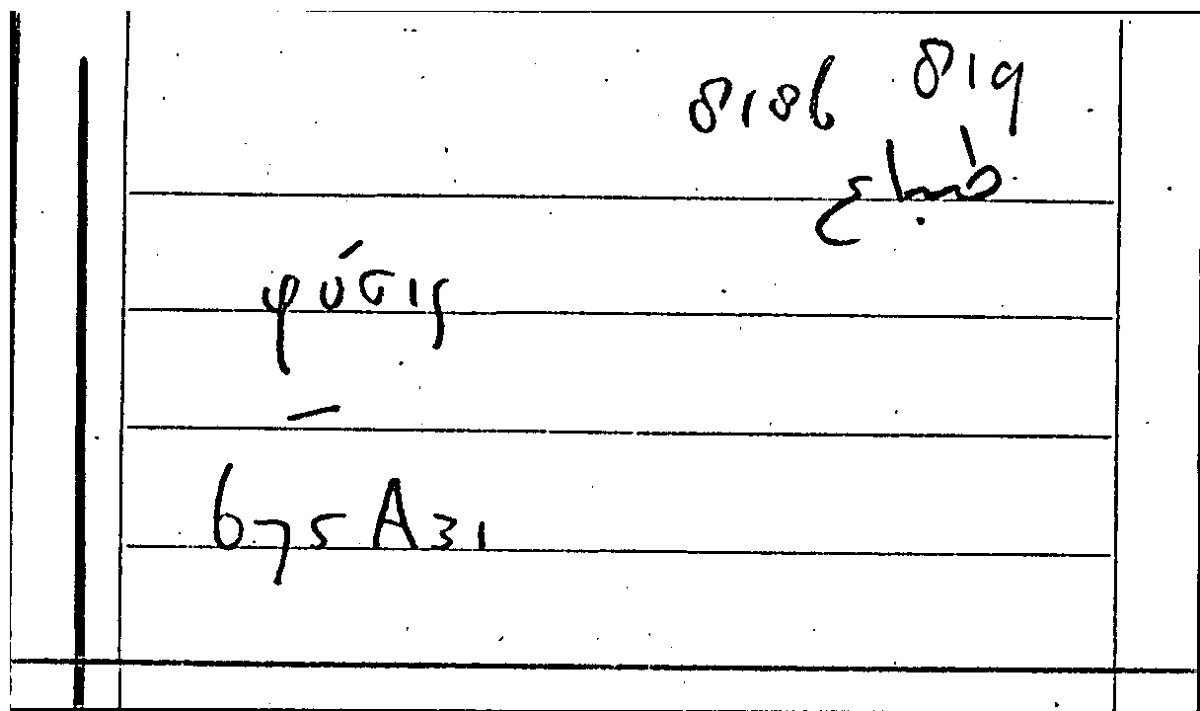 8186 819
طباع
φύσις
—
675 A31